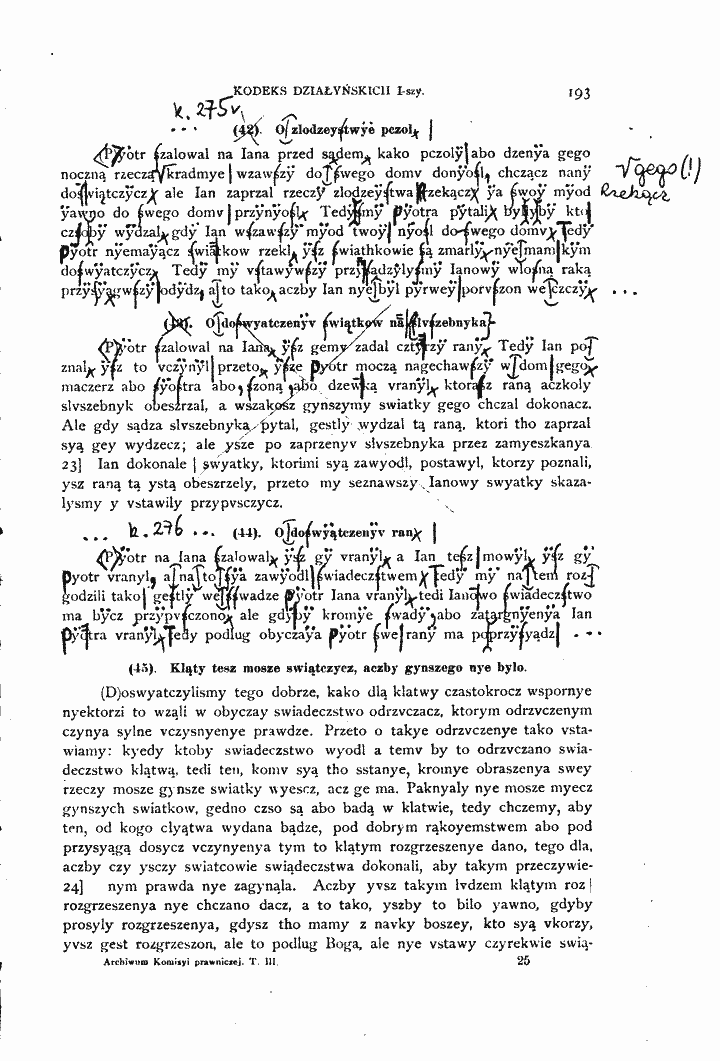 KODEKS DZIAŁYŃSKICH I-szy. 193
k. 275v
... (42). O zlodzeystwye pczol
(P)yotr szalowal na Iana przed sądem, kako pczoly abo dzenya gego
noczną rzeczą kradmye wzawszy do swego domv donyosl, chcząc nany
doswiątczycz, ale Ian zaprzal rzeczy zlodzeystwa rzekącz ya swoy myod
Vgego(!)
Rzekącz
yawno do swego domv przynyosl. Tedy smy pyotra pytali, byslyby kto
czsoby wydzal, gdy Ian wszawszy myod twoy nyosl do swego domv. Tedy
pyotr nyemayącz swiatkow rzekl, ysz swiathkowie są zmarly, nye mam kym
doswyatczycz. Tedy my vstawywszy przysądzylysmy Ianowy wlosną raką
przysyągwszy odydz, a to tako, aczby Ian nye byl pyrwey porvszon we czczy. ...
O doswyatczenyv swiątkow na slvszebnyka
(P)yotr szalowal na Iana, ysz gemv zadal cztyrzy rany. Tedy Ian po
znal, ysz to vczynyl przeto, ysze pyotr moczą nagechawszy w dom gego
maczerz abo syostra abo szoną abo dzewką vranyl, ktorasz raną aczkoly
slvszebnyk obeszrzal, a wszakosz gynszymy swiatky gego chczal dokonacz.
Ale gdy sądza slvszebnyka pytal, gestly wydzal tą raną, ktori tho zaprzal
syą gey wydzecz; ale ysze po zaprzenyv slvszebnyka przez zamyeszkanya
23] Ian dokonale | swyatky, ktorimi syą zawyodl, postawyl, ktorzy poznali,
ysz raną tą ystą obeszrzely, przeto my seznawszy Ianowy swyatky skaza-
lysmy y vstawily przypvsczycz.
... k. 276 ... (44). O doswyątczenyv ran
(P)yotr na Iana szalowal, ysz gy vranyl, a Ian tesz mowyl, ysz gy
pyotr vranyl, a na to sya zawyodl swiadeczstwem. Tedy my na tem roz
godzili tako, gestly we swadze pyotr Iana vranyl, tedi Ianowo swiadeczstwo
ma bycz przypvsczono, ale gdyby kromye swady abo zatargnyenya Ian
pyotra vranyl. Tedy podlug obyczaya pyotr swe rany ma poprzysyądz ...
(45). Kląty tesz mosze swiątczycz, aczby gynszego nye bylo.
(D)oswyatczylismy tego dobrze, kako dlą klatwy czastokrocz wspornye
nyektorzi to wząli w obyczay swiadeczstwo odrzvczacz, ktorym odrzvczenym
czynya sylne vczysnyenye prawdze. Przeto o takye odrzvczenye tako vsta-
wiamy: kyedy ktoby swiadeczstwo wyodl a temv by to odrzvczano swia-
deczstwo klątwą, tedi ten, komv syą tho sstanye, kromye obraszenya swey
rzeczy mosze gynsze swiatky wyescz, acz ge ma. Paknyaly nye mosze myecz
gynszych swiatkow, gedno czso są abo badą w klatwie, tedy chczemy, aby
ten, od kogo clyątwa wydana bądze, pod dobrym rąkoyemstwem abo pod
przysyągą dosycz vczynyenya tym to klątym rozgrzeszenye dano, tego dla,
aczby czy ysczy swiatcowie swiądeczstwa dokonali, aby takym przeczywie-
24] nym prawda nye zagynąla. Aczby yvsz takym lvdzem klątym roz|
rozgrzeszenya nye chczano dacz, a to tako, yszby to bilo yawno, gdyby
prosyly rozgrzeszenya, gdysz tho mamy z navky boszey, kto syą vkorzy,
yvsz gest rozgrzeszon, ale to podlug Boga, ale nye vstawy czyrekwie swią-
Archiwum Komisyi prawniczej. T. III. 25